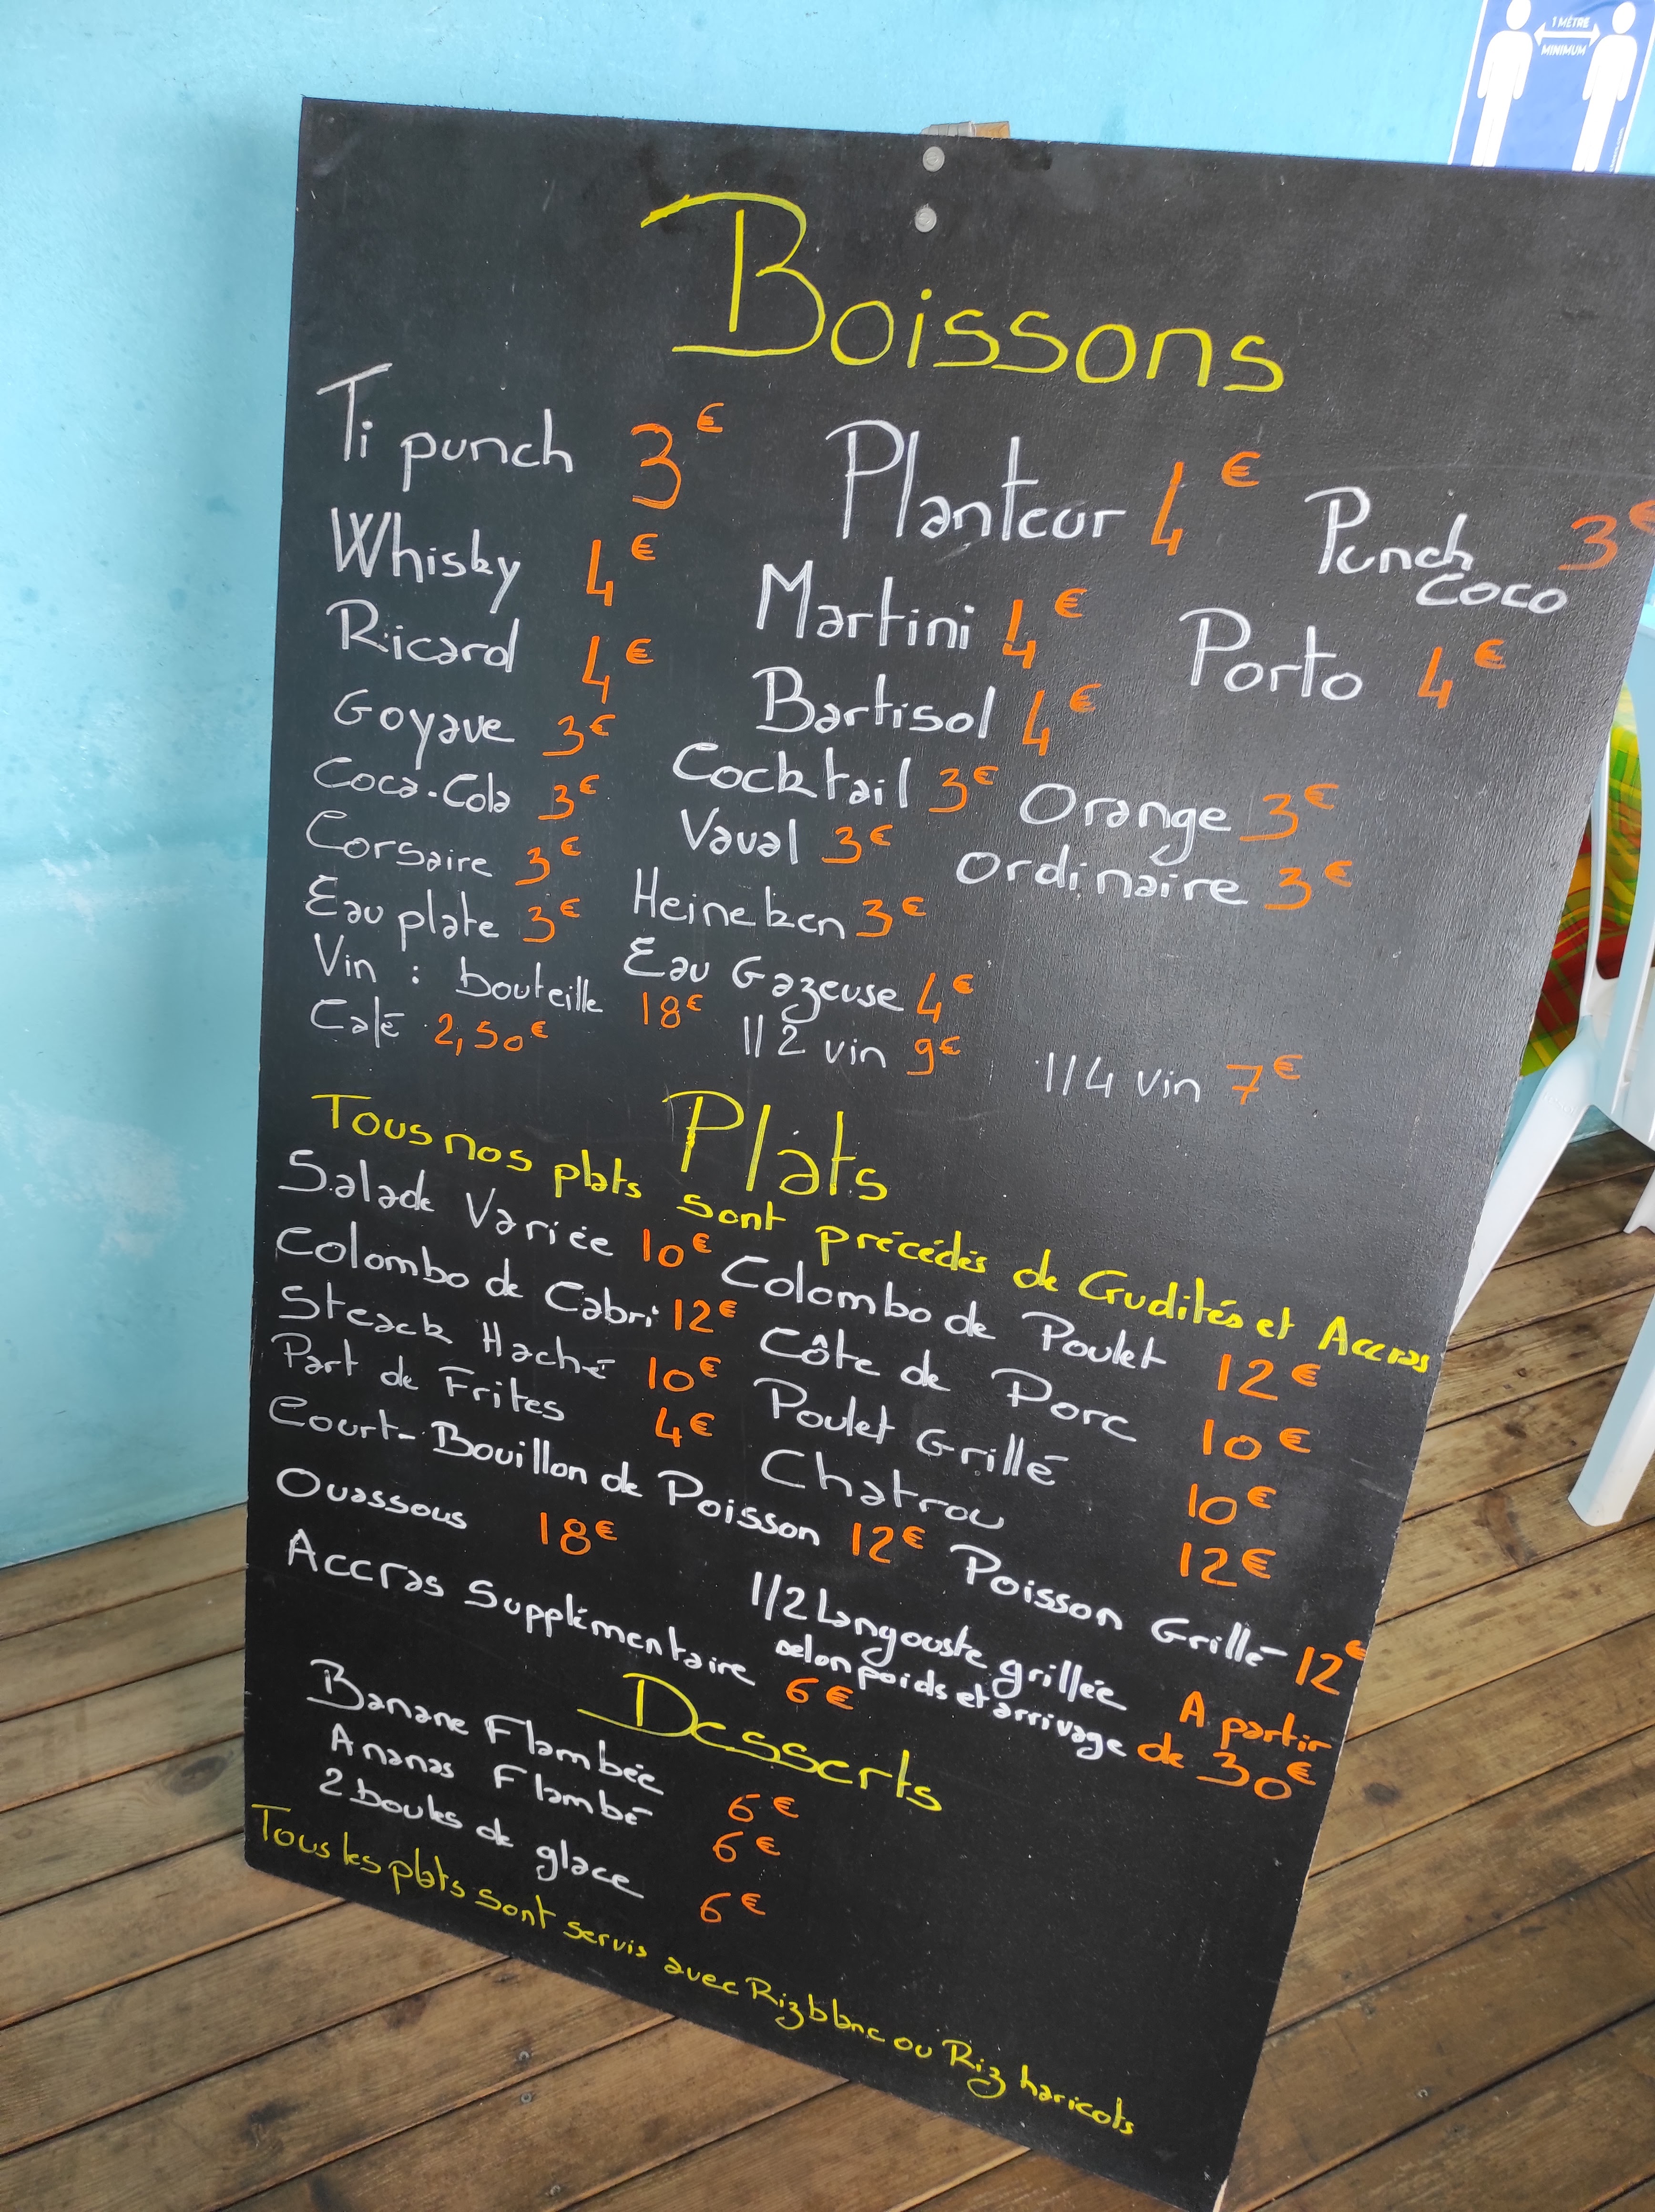 1 MÈTRE
MINIMUM
Boissons
Ti punch 3€ Planteur 4€ Punch coco 3€
Whisky 4€ Martini 4€ Porto 4€
Ricard 4€ Bartisol 4€
Goyave 3€ Cocktail 3€ Orange 3€
Coca-Cola 3€ Vaval 3€ Ordinaire 3€
Corsaire 3€ Heineken 3€
Eau plate 3€ Eau Gazeuse 4€
Vin : bouteille 18€ 1/2 vin 9€ 1/4 vin 7€
Café 2,50€
Plats
Tous nos plats sont précédés de Crudités et Accras
Salade Variée 10€ Colombo de Poulet 12€
Colombo de Cabri 12€ Côte de Porc 10€
Steack Haché 10€ Poulet Grillé 10€
Part de Frites 4€ Chatrou 12€
Court-Bouillon de Poisson 12€ Poisson Grillé 12€
Ouassous 18€ 1/2 Langouste grillée A partir
selon poids et arrivage de 30€
Accras Supplémentaire 6€
Desserts
Banane Flambée 6€
Ananas Flambé 6€
2 boules de glace 6€
Tous les plats sont servis avec Riz blanc ou Riz haricots